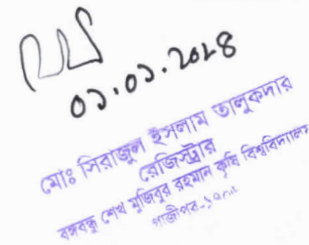 ০১.০১.২০১৪
মোঃ সিরাজুল ইসলাম তালুকদার
রেজিস্ট্রার
বঙ্গবন্ধু শেখ মুজিবুর রহমান কৃষি বিশ্ববিদ্যালয়
গাজীপুর-১৭০৬